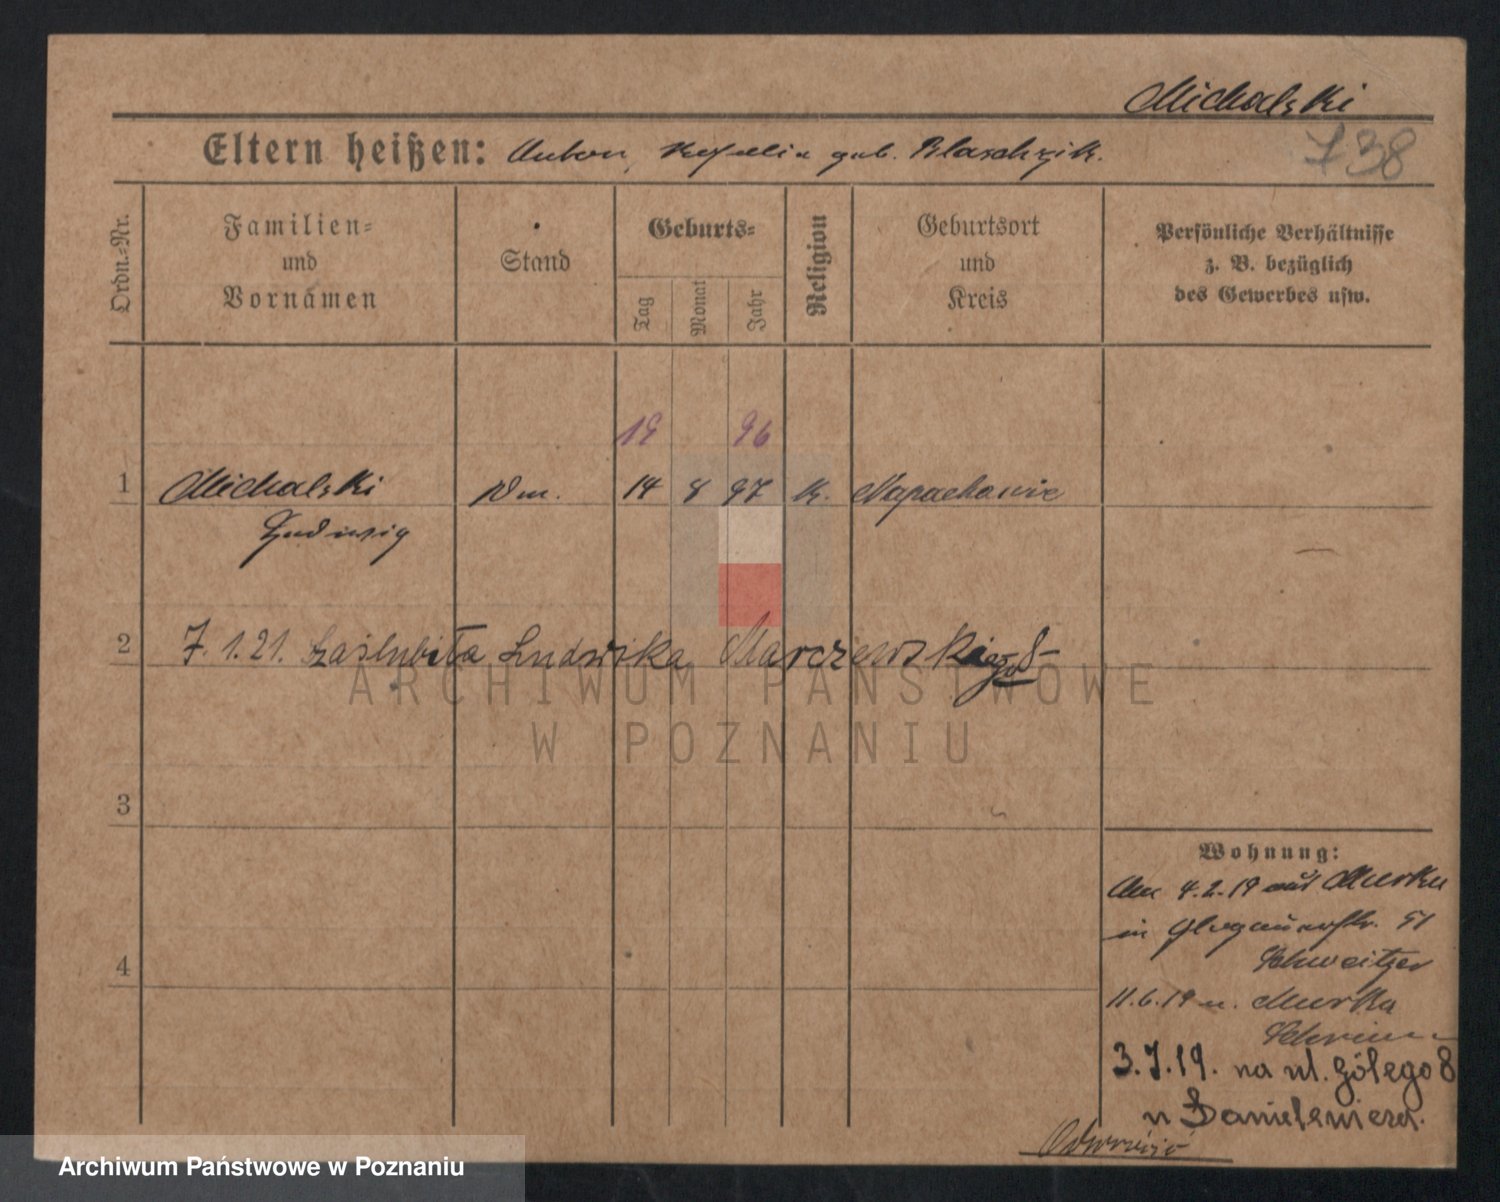 Michalski
Eltern heißen: Anton, Rosalie geb. Blaschzik.
738
Ordn.-Nr.
Familien-
und
Vornamen
Stand
Geburts-
Tag
Monat
Jahr
Religion
Geburtsort
und
Kreis
Persönliche Verhältnisse
z. B. bezüglich
des Gewerbes usw.
19 96
1 Michalski 14 8 97 k. Napachanie
Ludwig
2 7.1.21. zaślubiła Ludwika Marczewskiego
ARCHIWUM PAŃSTWOWE
W POZNANIU
3
Wohnung:
4.2.19 aus Murka
in Glogauerstr. 51
Schweitzer
4
11.6.19 n. Murka
Schrimm
3.7.19. na ul. Gółego 8
u Danielewicza.
Archiwum Państwowe w Poznaniu